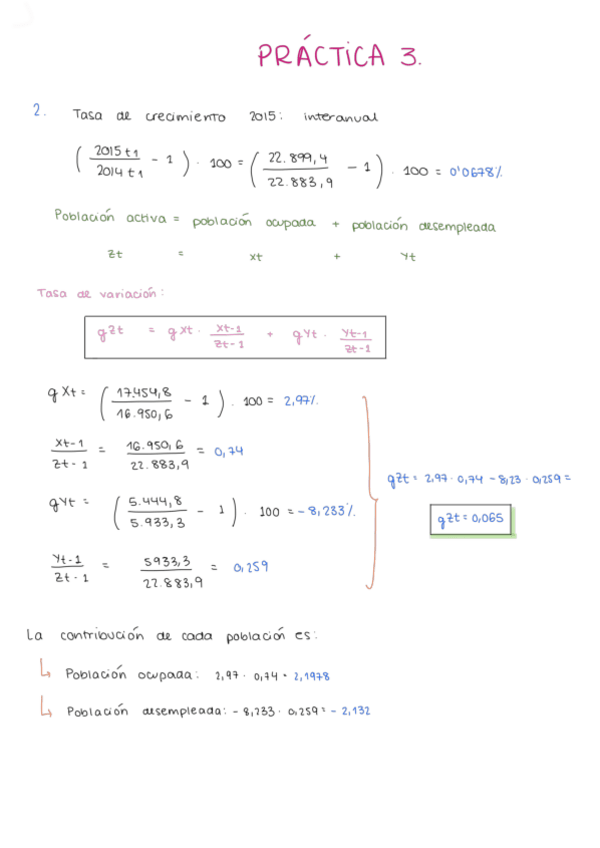 PRÁCTICA 3.
2. Tasa de crecimiento 2015: interanual
( 2015 t1 / 2014 t1 - 1 ) · 100 = ( 22.899,4 / 22.883,9 - 1 ) · 100 = 0'0678%
Población activa = población ocupada + población desempleada
Zt = xt + Yt
Tasa de variación:
gZt = gXt · Xt-1 / Zt-1 + gYt · Yt-1 / Zt-1
gXt = ( 17.454,8 / 16.950,6 - 1 ) · 100 = 2,97%
Xt-1 / Zt-1 = 16.950,6 / 22.883,9 = 0,74
gYt = ( 5.444,8 / 5.933,3 - 1 ) · 100 = -8,233%
gZt = 2,97 · 0,74 - 8,23 · 0,259 =
gZt = 0,065
Yt-1 / Zt-1 = 5933,3 / 22.883,9 = 0,259
La contribución de cada población es:
Población ocupada: 2,97 · 0,74 = 2,1978
Población desempleada: - 8,233 · 0,259 = - 2,132